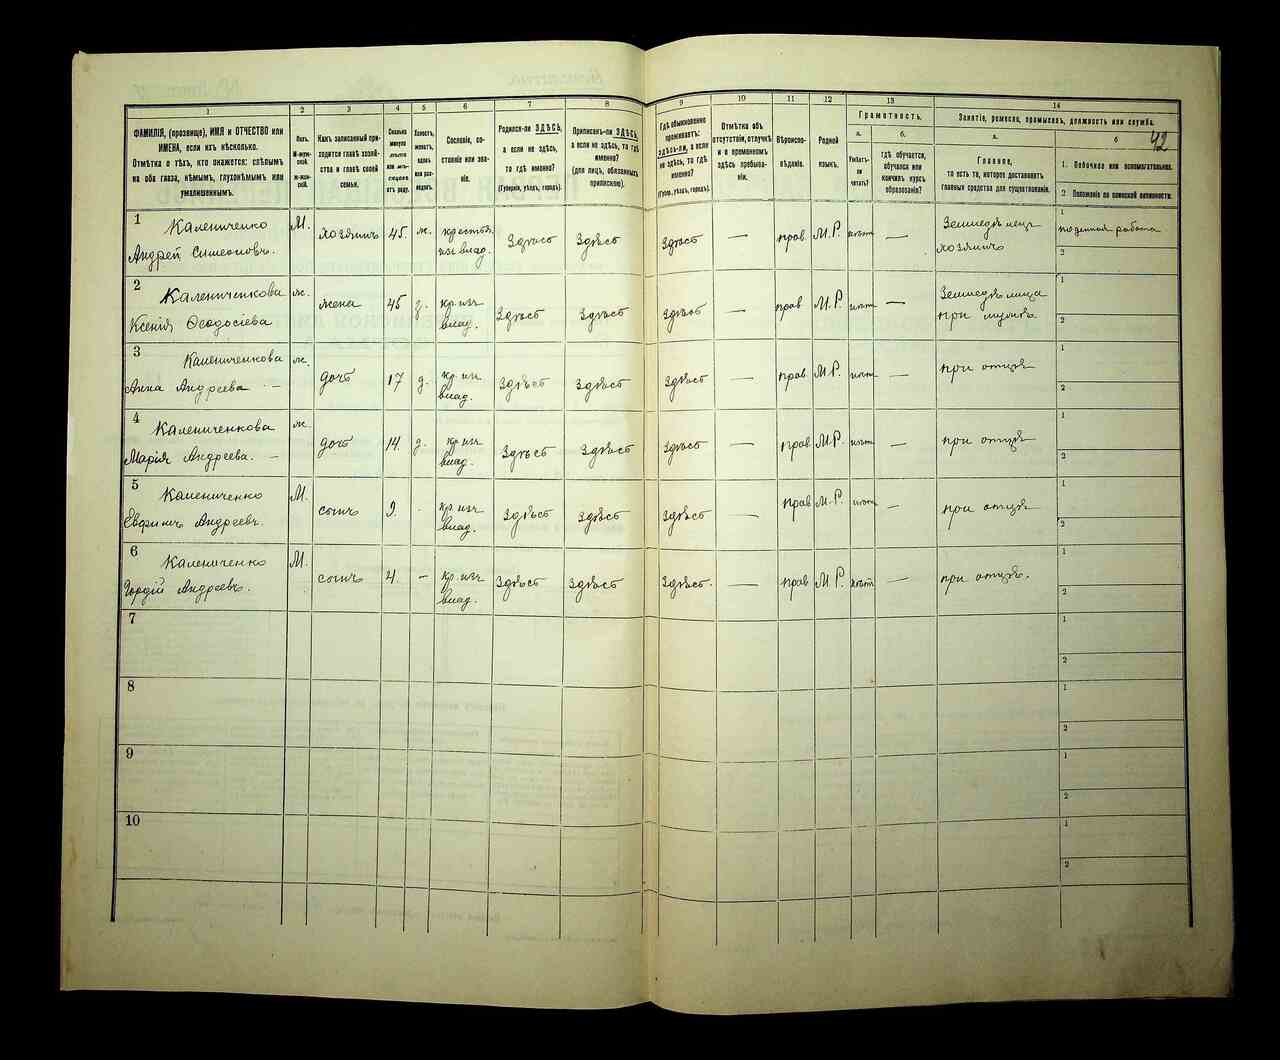 42
1 2 3 4 5 6 7 8 9 10 11 12 13 14
ФАМИЛІЯ, (прозвище), ИМЯ и ОТЧЕСТВО или
ИМЕНА, если ихъ нѣсколько.
Отмѣтка о тѣхъ, кто окажется: слѣпымъ
на оба глаза, нѣмымъ, глухонѣмымъ или
умалишеннымъ.
Полъ.
М-муж-
ской.
ж-жен-
скій.
Какъ записанный при-
ходится главѣ хозяй-
ства и главѣ своей
семьи.
Сколько
минуло
лѣтъ
или мѣ-
сяцевъ
отъ роду.
Холостъ,
женатъ,
вдовъ
или раз-
веденъ.
Сословіе, со-
стояніе или зва-
ніе.
Родился-ли ЗДѢСЬ,
а если не здѣсь,
то гдѣ именно?
(Губернія, уѣздъ, городъ).
Приписанъ-ли ЗДѢСЬ,
а если не здѣсь, то гдѣ
именно?
(для лицъ, обязанныхъ
припискою).
Гдѣ обыкновенно
проживаетъ:
ЗДѢСЬ-ЛИ, а если
не здѣсь, то гдѣ
именно?
(Губер., уѣздъ, городъ).
Отмѣтка объ
отсутствіи, отлучкѣ
и о временномъ
здѣсь пребыва-
ніи.
Вѣроиспо-
вѣданіе.
Родной
языкъ.
Грамотность.
а.
Умѣетъ-
ли
читать?
б.
гдѣ обучается,
обучался или
кончилъ курсъ
образованія?
Занятіе, ремесло, промыселъ, должность или служба.
а.
Главное,
то есть то, которое доставляетъ
главныя средства для существованія.
б
1. Побочное или вспомогательное.
2 Положеніе по воинской повинности.
1 Калениченко М. хозяинъ 45 ж. крестьян. Здѣсь Здѣсь Здѣсь — прав. М.Р. нѣтъ — Земледѣлецъ 1 поденная работа
Андрей Симеоновъ. изъ влад. хозяинъ 2
2 Калениченкова ж. жена 45 з. кр. изъ Здѣсь Здѣсь Здѣсь — прав. М.Р нѣтъ — Земледѣлица 1
Ксенія Ѳеодосіева влад. при мужѣ 2
3 Калениченкова ж. дочь 17 д. кр. изъ Здѣсь Здѣсь Здѣсь — прав. М.Р. нѣтъ — при отцѣ 1
Анна Андреева — влад. 2
4 Калениченкова ж. дочь 14. д. кр. изъ Здѣсь Здѣсь Здѣсь — прав. М.Р. нѣтъ — при отцѣ 1
Марія Андреева. — влад. 2
5 Калениченко М. сынъ 9. кр. изъ Здѣсь Здѣсь Здѣсь — прав. М.Р. нѣтъ — при отцѣ 1
Андреевъ. влад. 2
6 Калениченко М. сынъ 4. — кр. изъ Здѣсь Здѣсь Здѣсь. — прав. М Р. нѣтъ — при отцѣ. 1
Гордій Андреевъ. влад. 2
7 1
2
8 1
2
9 1
2
10 1
2